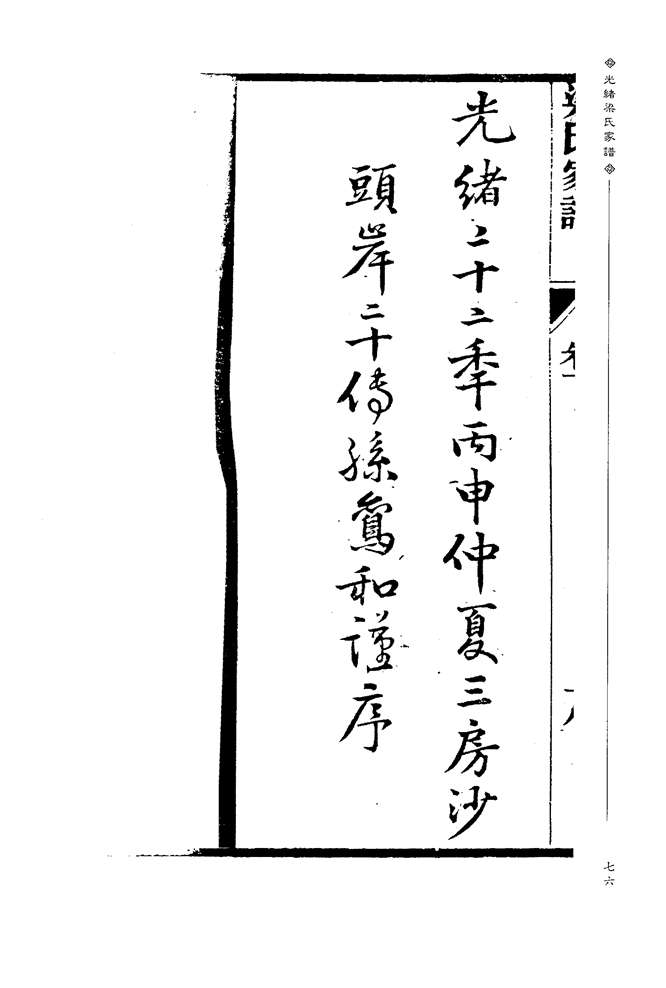 光緒梁氏家譜
梁氏家譜
卷一
光緒二十二秊丙申仲夏三房沙
頭岸二十傳孫鴛和謹序
七六